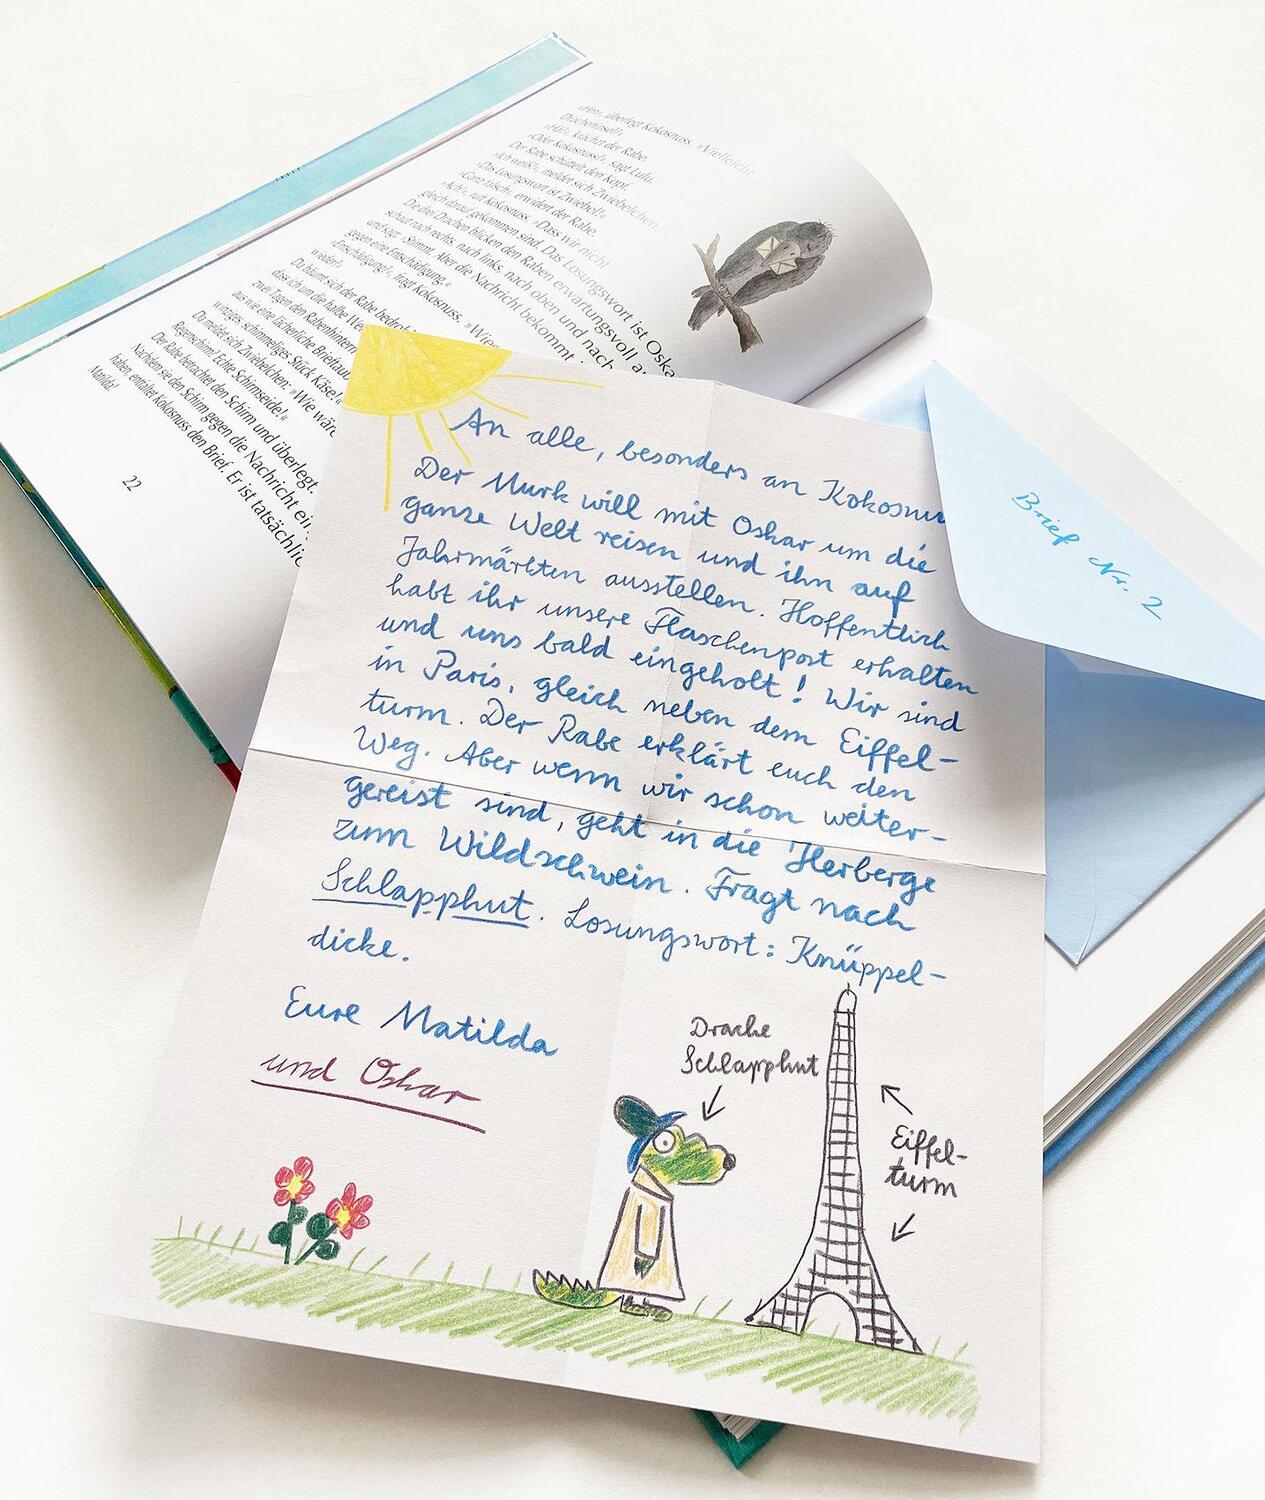 »Hm«, überlegt Kokosnuss. »Vielleicht ...
Dracheninsel?«
»Hä?«, krächzt der Rabe.
»Oder Kokosnuss?«, sagt Lulu.
Der Rabe schüttelt den Kopf.
»Ich weiß!«, meldet sich Zwiebelchen.
»Das Losungswort ist Zwiebel!«
»Ganz falsch«, erwidert der Rabe.
»Ach!«, ruft Kokosnuss. »Dass wir nicht
gleich darauf gekommen sind. Das Losungswort ist Oska
Die drei Drachen blicken den Raben erwartungsvoll a
schaut nach rechts, nach links, nach oben und nach
und sagt: »Stimmt. Aber die Nachricht bekommt i
gegen eine Entschädigung.«
»Entschädigung?«, fragt Kokosnuss. »Wies
wieder?«
Da bäumt sich der Rabe bedroh
dass ich um die halbe We
zwei Tagen den Rabenhinter
aus wie eine lächerliche Briefta
winziges, schimmeliges Stück Käse!«
Da meldet sich Zwiebelchen: »Wie wäre
Regenschirm? Echte Schirmseide!«
Der Rabe betrachtet den Schirm und überlegt.
Nachdem sie den Schirm gegen die Nachricht ein
haben, entfaltet Kokosnuss den Brief. Er ist tatsächlic
Matilda!
22
An alle, besonders an Kokosnu
Der Murk will mit Oskar um die
ganze Welt reisen und ihn auf
Jahrmärkten ausstellen. Hoffentlich
habt ihr unsere Flaschenpost erhalten
und uns bald eingeholt! Wir sind
in Paris, gleich neben dem Eiffel-
turm. Der Rabe erklärt euch den
Weg. Aber wenn wir schon weiter-
gereist sind, geht in die Herberge
zum Wildschwein. Fragt nach
Schlapphut. Losungswort: Knüppel-
dicke.
Eure Matilda
und Oskar
Drache
Schlapphut
Eiffel-
turm
Brief Nr. 2